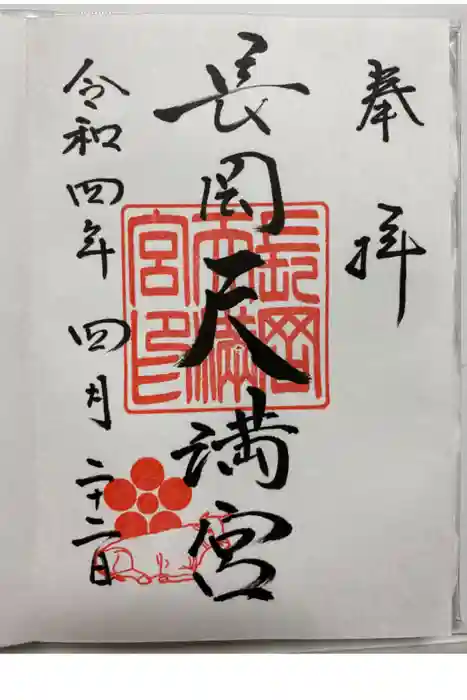 奉拝
長岡天満宮
長岡天満宮印
令和四年四月二十二日